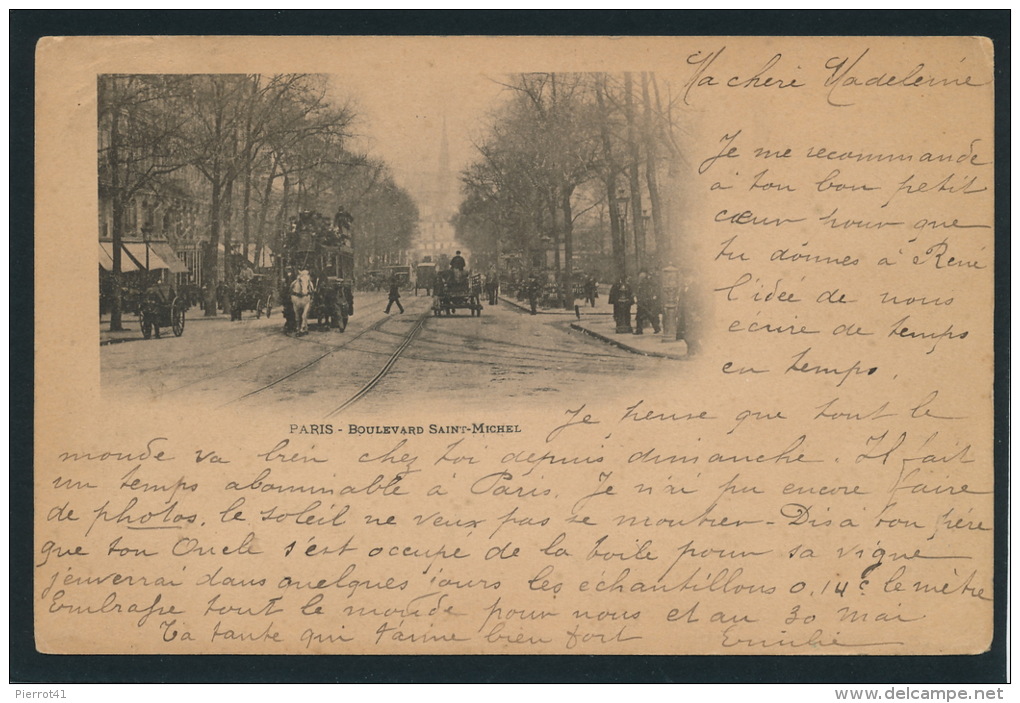 Ma chère Madeleine
Je me recommande
à ton bon petit
cœur pour que
tu donnes à René
l'idée de nous
écrire de temps
en temps.
PARIS - BOULEVARD SAINT-MICHEL
Je pense que tout le
monde va bien chez toi depuis dimanche. Il fait
un temps abominable à Paris. Je n'ai pu encore faire
de photos, le soleil ne veux pas se montrer - Dis à ton père
que ton Oncle s'est occupé de la toile pour sa vigne
j'enverrai dans quelques jours les échantillons 0,14c le mètre
Embrasse tout le monde pour nous et au 30 mai
Ta tante qui t'aime bien fort Emilie
Pierrot41
www.delcampe.net